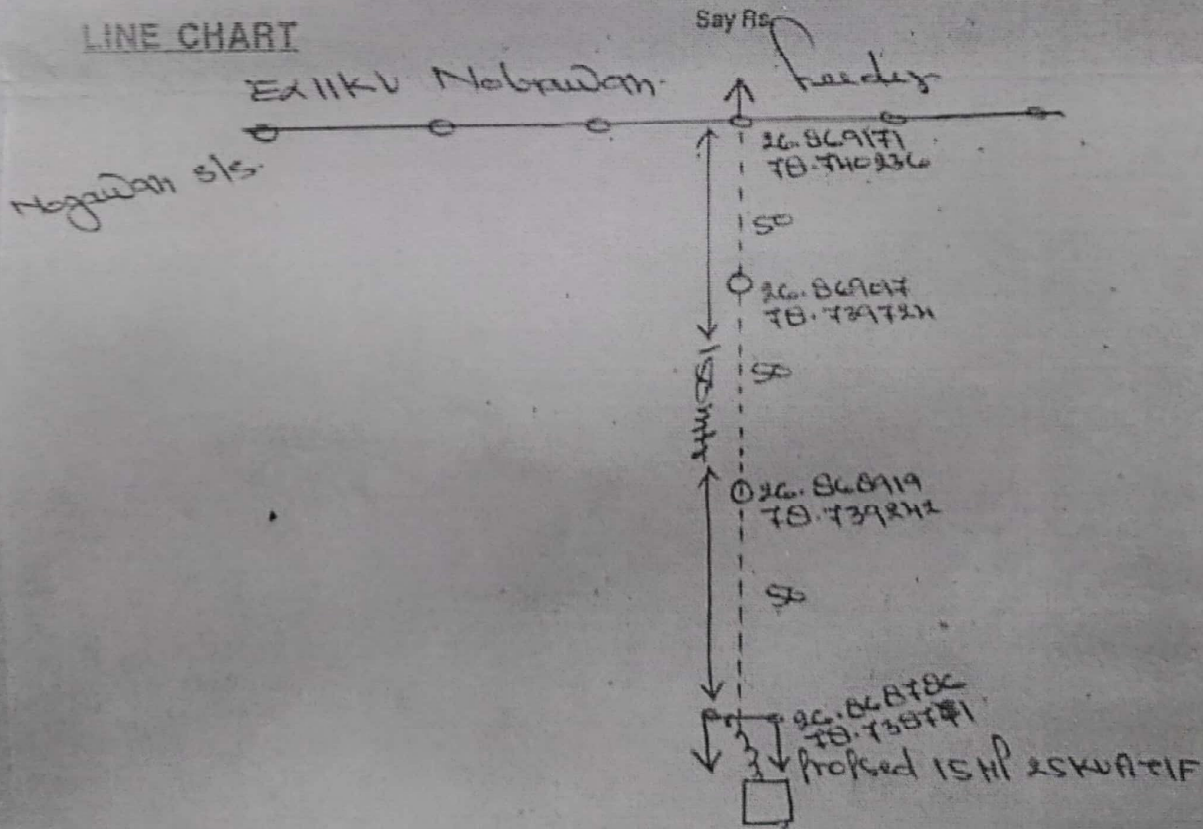 LINE CHART
Say Rs.
Ex 11KV Nobrawan feeder
Nogawan S/S.
26.869171
78.740236
50
26.869047
78.739724
150 mtr
50
26.868919
78.739242
50
26.868786
78.738771
Propsed 15 HP 25 KVA T/F